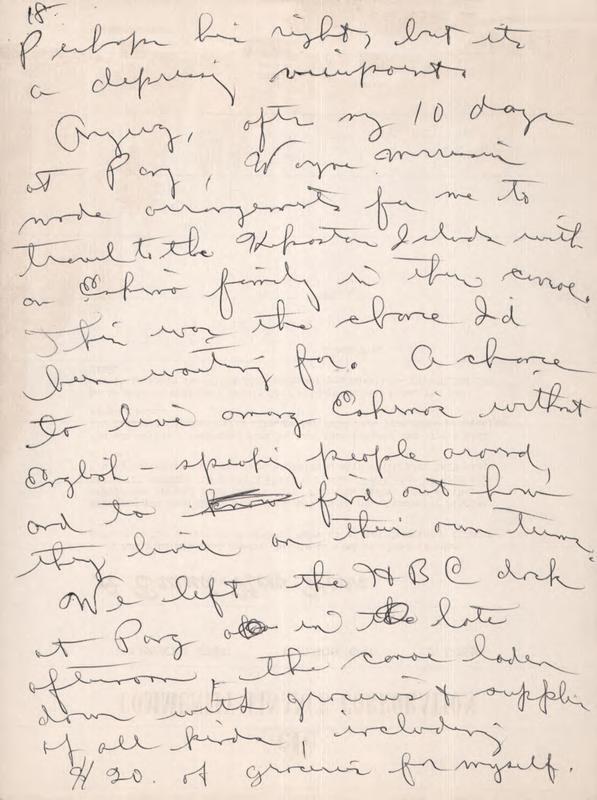 18.
Perhaps his right, but its
a depressing viewpoint.
Anyway, after my 10 days
at Povg, Wayne
made arrangements for me to
travel to the Islands with
an Eskimo family in their canoe.
This was the chance I'd
been waiting for. A chance
to live among Eskimos without
English-speaking people around,
and to know find out how
they lived on their own terms.
We left the HBC dock
at Povg in the late
afternoon, the canoe laden
down with groceries & supplies
of all kinds, including
$20. of groceries for myself.